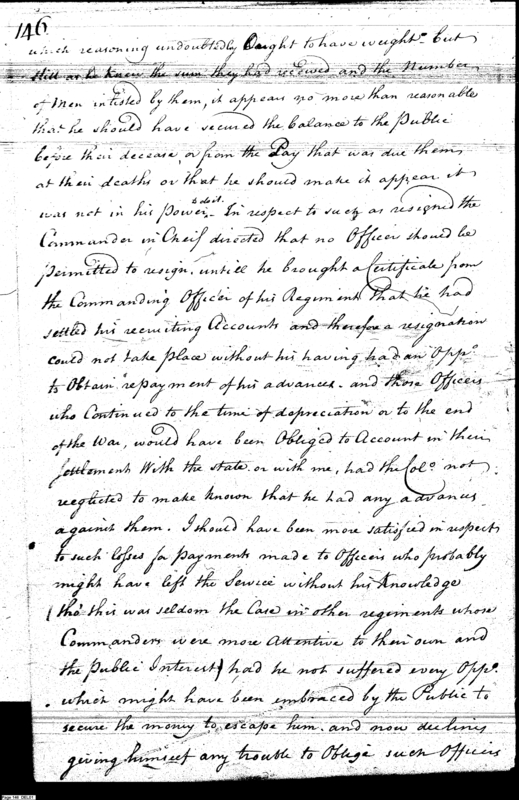 146
which reasoning undoubtedly Ought to have weight - but
still as he knew the sum they had received and the Number
of Men inlisted by them, it appears no more than reasonable
that he should have secured the balance to the Public
before their decease, or from the Pay that was due them
at their deaths or that he should make it appear it
was not in his Power to do it. - In respect to such as resigned the
Commander in Cheif directed that no Officer should be
permitted to resign, untill he brought a Certificate from
the Commanding Officer of his Regiment that he had
settled his recruiting Accounts and therefore a resignation
could not take place without his having had an Oppy.
to Obtain repayment of his advances - and those Officers
who Continued to the time of depreciation or to the end
of the War, would have been Obliged to Account in their
Settlement With the state or with me, had the Colo. not
neglected to make known that he had any advances
against them. I should have been more satisfied in respect
to such losses for Payments made to Officers who probably
might have left the Service without his Knowledge
(tho' this was seldom the Case in other regiments whose
Commanders were more Attentive to their own and
the Public Interest) had he not suffered every Oppy.
which might have been embraced by the Public to
secure the money to escape him - and now declines
giving himself any trouble to Oblige such Officers